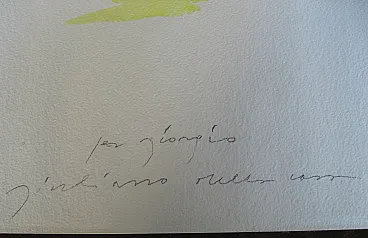 per giorgio
giuliano della casa